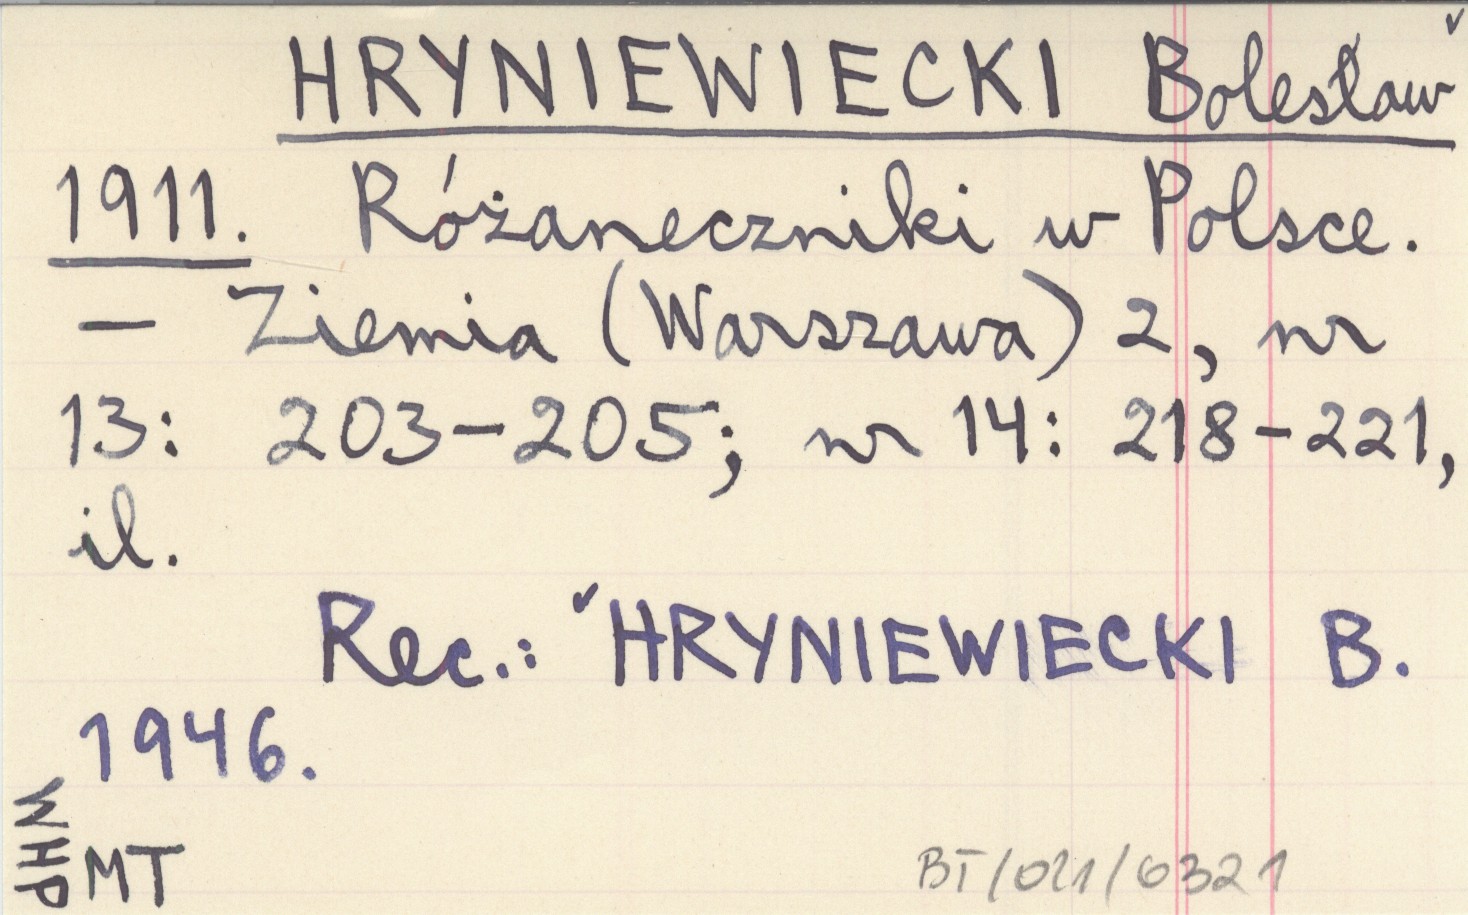 HRYNIEWIECKI Bolesław
1911. Różaneczniki w Polsce.
— Ziemia (Warszawa) 2, nr
13: 203–205; nr 14: 218–221,
il.
Rec.: HRYNIEWIECKI B.
1946.
WHP
MT
BT/021/0321